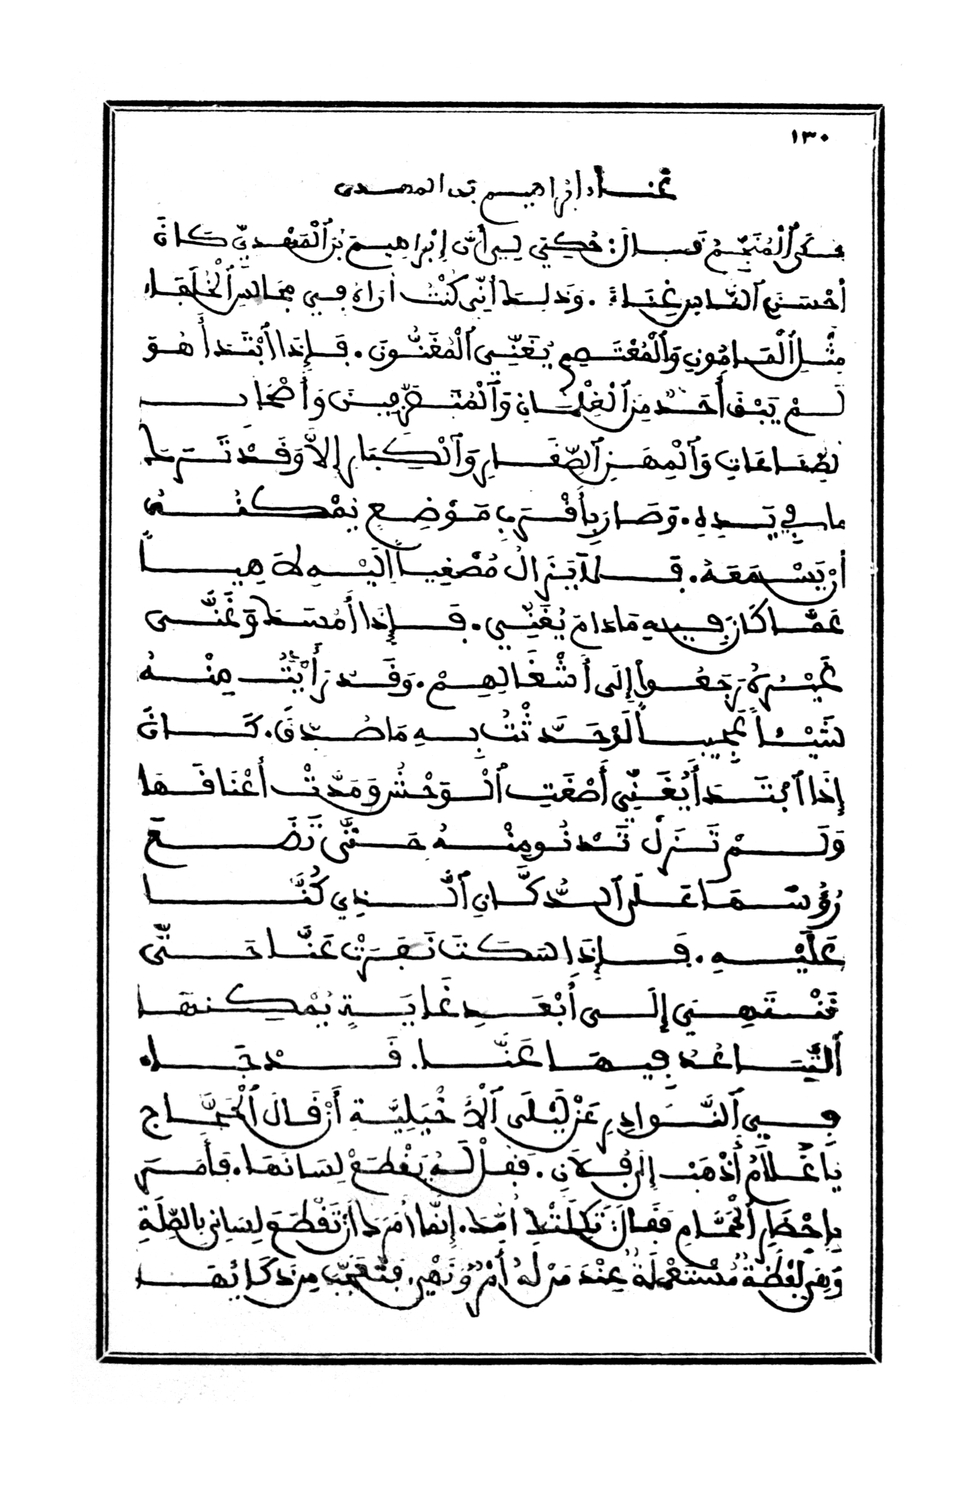 ١٣٠
غناء إبراهيم بن المهدي
حكى ٱلْمُنَجِّمُ قال: حُكِيَ لِي أن إِبْرَاهِيمَ بْنَ ٱلْمَهْدِيِّ كَانَ
أَحْسَنَ ٱلنَّاسِ غِنَاءً. وَذلِكَ أَنِّي كُنْتُ أَرَاهُ فِي مَجَالِسِ ٱلْخُلَفَاءِ
مِثْلِ ٱلْمَامُونِ وَٱلْمُعْتَصِمِ يُغَنِّي ٱلْمُغَنُّونَ. فَإِذَا ٱبْتَدَأَ هُوَ
لَمْ يَبْقَ أَحَدٌ مِنَ ٱلْغِلْمَانِ وَٱلْمُتَصَرِّفِينَ وَأَصْحَابِ
ٱلصِّنَاعَاتِ وَٱلْمِهَنِ ٱلصِّغَارِ وَٱلْكِبَارِ إِلَّا وَقَدْ تَرَكَ
مَا فِي يَدِهِ. وَصَارَ بِأَقْرَبِ مَوْضِعٍ يُمْكِنُهُ
أَنْ يَسْمَعَهُ. فَلَا يَزَالُ مُصْغِياً إِلَيْهِ لَاهِياً
عَمَّا كَانَ فِيهِ مَا دَامَ يُغَنِّي. فَإِذَا أَمْسَكَ وَغَنَّى
غَيْرُهُ رَجَعُوا إِلَى أَشْغَالِهِمْ. وَقَدْ رَأَيْتُ مِنْهُ
شَيْئاً عَجِيباً لَوْ حَدَّثْتُ بِهِ مَا صُدِّقَ. كَانَ
إِذَا ٱبْتَدَأَ يُغَنِّي أَصْغَتِ ٱلْوَحْشُ وَمَدَّتْ أَعْنَاقَهَا
وَلَمْ تَزَلْ تَدْنُو مِنْهُ حَتَّى تَضَعَ
رُؤُسَهَا عَلَى ٱلدُّكَّانِ ٱلَّذِي كُنَّا
عَلَيْهِ. فَإِذَا سَكَتَ نَفَرَتْ عَنَّا حَتَّى
تَنْتَهِيَ إِلَى أَبْعَدِ غَايَةٍ يُمْكِنُهَا
ٱلتَّبَاعُدُ فِيهَا عَنَّا. قَدْ جَاءَ
فِي ٱلنَّوَادِرِ عَنْ لَيْلَى ٱلْأَخْيَلِيَّةِ أَنْ قَالَ ٱلْحَجَّاجُ
يَا غُلَامُ ٱذْهَبْ إِلَى فُلَانٍ. فَقُلْ لَهُ يَقْطَعْ لِسَانَهَا. فَأَمَرَ
بِإِحْضَارِ ٱلْحَجَّامِ فَقَالَتْ ثَكِلَتْكَ أُمُّكَ. إِنَّمَا أَمَرَكَ أَنْ تَقْطَعَ لِسَانِي بِالصِّلَةِ
وَهِيَ لَفْظَةٌ مُسْتَعْمَلَةٌ عِنْدَ مَنْ لَهُ أَمْرٌ وَنَهْيٌ. فَتَعَجَّبَ مِنْ ذَكَائِهَا